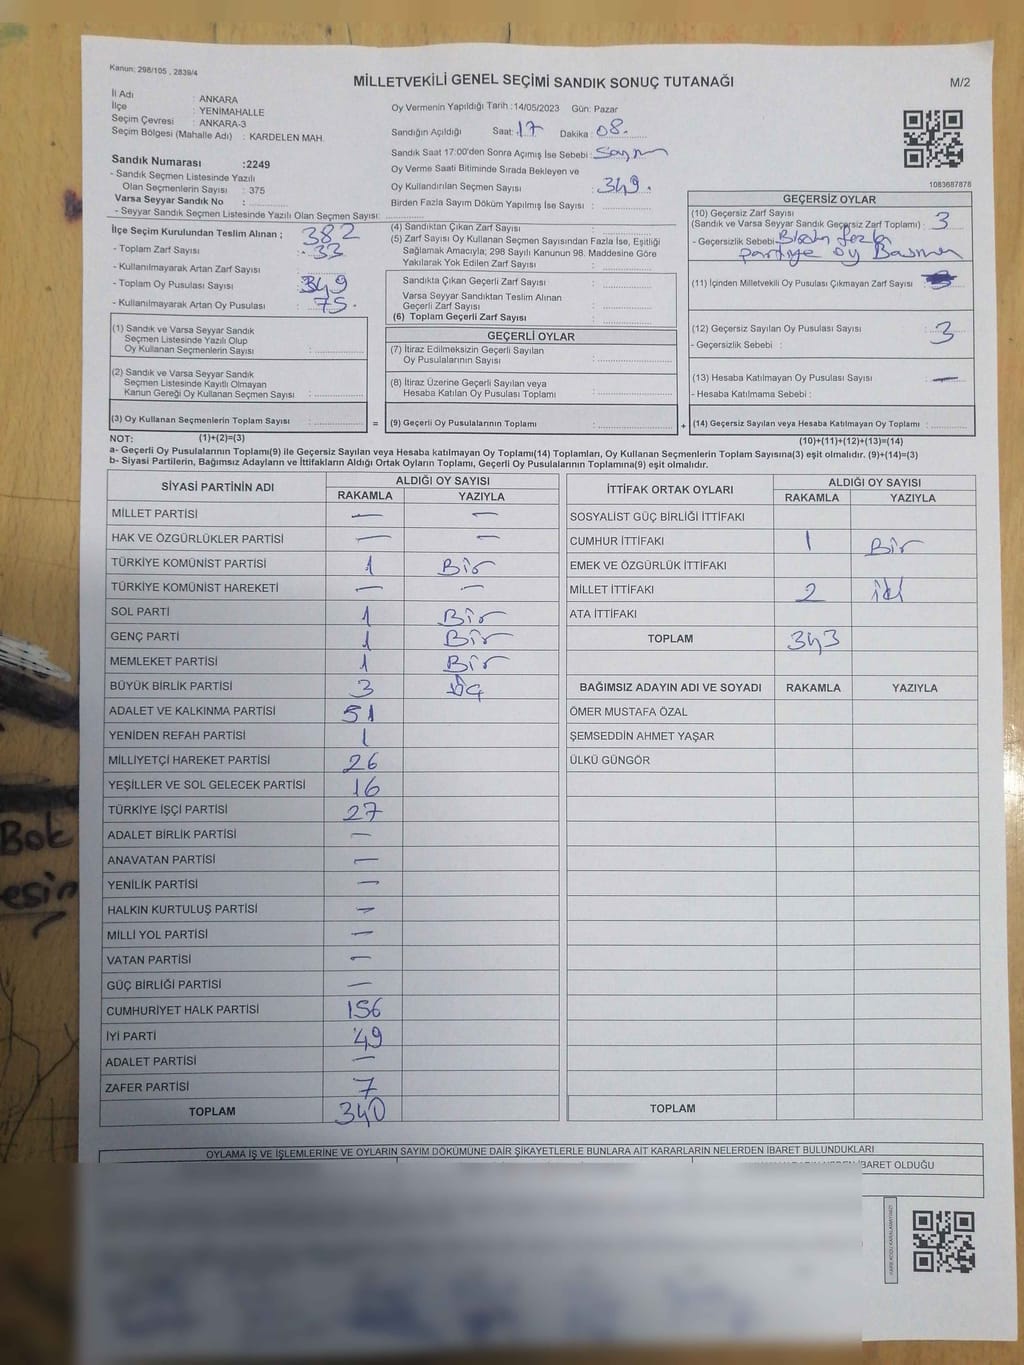 Kanun: 298/105 , 2839/4
MİLLETVEKİLİ GENEL SEÇİMİ SANDIK SONUÇ TUTANAĞI
M/2
İl Adı : ANKARA
İlçe : YENİMAHALLE
Seçim Çevresi : ANKARA-3
Seçim Bölgesi (Mahalle Adı) : KARDELEN MAH.
Sandık Numarası :2249
- Sandık Seçmen Listesinde Yazılı
Olan Seçmenlerin Sayısı : 375
Varsa Seyyar Sandık No :
- Seyyar Sandık Seçmen Listesinde Yazılı Olan Seçmen Sayısı:
Oy Vermenin Yapıldığı Tarih :14/05/2023 Gün: Pazar
Sandığın Açıldığı Saat: 17 Dakika : 08.
Sandık Saat 17:00'den Sonra Açımış İse Sebebi : Sayım
Oy Verme Saati Bitiminde Sırada Bekleyen ve
Oy Kullandırılan Seçmen Sayısı : 349.
Birden Fazla Sayım Döküm Yapılmış İse Sayısı :
1083687878
İlçe Seçim Kurulundan Teslim Alınan ; 382
- Toplam Zarf Sayısı : 33
- Kullanılmayarak Artan Zarf Sayısı :
- Toplam Oy Pusulası Sayısı : 349
- Kullanılmayarak Artan Oy Pusulası : 75.
(1) Sandık ve Varsa Seyyar Sandık
Seçmen Listesinde Yazılı Olup
Oy Kullanan Seçmenlerin Sayısı :
(2) Sandık ve Varsa Seyyar Sandık
Seçmen Listesinde Kayıtlı Olmayan
Kanun Gereği Oy Kullanan Seçmen Sayısı :
(3) Oy Kullanan Seçmenlerin Toplam Sayısı :
(4) Sandıktan Çıkan Zarf Sayısı :
(5) Zarf Sayısı Oy Kullanan Seçmen Sayısından Fazla İse, Eşitliği
Sağlamak Amacıyla; 298 Sayılı Kanunun 98. Maddesine Göre
Yakılarak Yok Edilen Zarf Sayısı :
Sandıkta Çıkan Geçerli Zarf Sayısı :
Varsa Seyyar Sandıktan Teslim Alınan
Geçerli Zarf Sayısı :
(6) Toplam Geçerli Zarf Sayısı :
GEÇERLİ OYLAR
(7) İtiraz Edilmeksizin Geçerli Sayılan
Oy Pusulalarının Sayısı :
(8) İtiraz Üzerine Geçerli Sayılan veya
Hesaba Katılan Oy Pusulası Toplamı :
= (9) Geçerli Oy Pusulalarının Toplamı :
GEÇERSİZ OYLAR
(10) Geçersiz Zarf Sayısı
(Sandık ve Varsa Seyyar Sandık Geçersiz Zarf Toplamı) : 3
- Geçersizlik Sebebi : Birden fazla
partiye oy Basma
(11) İçinden Milletvekili Oy Pusulası Çıkmayan Zarf Sayısı :
(12) Geçersiz Sayılan Oy Pusulası Sayısı : 3
- Geçersizlik Sebebi :
(13) Hesaba Katılmayan Oy Pusulası Sayısı : —
- Hesaba Katılmama Sebebi :
+ (14) Geçersiz Sayılan veya Hesaba Katılmayan Oy Toplamı :
NOT: (1)+(2)=(3)
(10)+(11)+(12)+(13)=(14)
a- Geçerli Oy Pusulalarının Toplamı(9) ile Geçersiz Sayılan veya Hesaba katılmayan Oy Toplamı(14) Toplamları, Oy Kullanan Seçmenlerin Toplam Sayısına(3) eşit olmalıdır. (9)+(14)=(3)
b- Siyasi Partilerin, Bağımsız Adayların ve İttifakların Aldığı Ortak Oyların Toplamı, Geçerli Oy Pusulalarının Toplamına(9) eşit olmalıdır.
SİYASİ PARTİNİN ADI ALDIĞI OY SAYISI
RAKAMLA YAZIYLA
MİLLET PARTİSİ — —
HAK VE ÖZGÜRLÜKLER PARTİSİ — —
TÜRKİYE KOMÜNİST PARTİSİ 1 Bir
TÜRKİYE KOMÜNİST HAREKETİ — —
SOL PARTİ 1 Bir
GENÇ PARTİ 1 Bir
MEMLEKET PARTİSİ 1 Bir
BÜYÜK BİRLİK PARTİSİ 3 Üç
ADALET VE KALKINMA PARTİSİ 51
YENİDEN REFAH PARTİSİ 1
MİLLİYETÇİ HAREKET PARTİSİ 26
YEŞİLLER VE SOL GELECEK PARTİSİ 16
TÜRKİYE İŞÇİ PARTİSİ 27
ADALET BİRLİK PARTİSİ —
ANAVATAN PARTİSİ —
YENİLİK PARTİSİ —
HALKIN KURTULUŞ PARTİSİ —
MİLLİ YOL PARTİSİ —
VATAN PARTİSİ —
GÜÇ BİRLİĞİ PARTİSİ —
CUMHURİYET HALK PARTİSİ 156
İYİ PARTİ 49
ADALET PARTİSİ —
ZAFER PARTİSİ 7
TOPLAM 340
İTTİFAK ORTAK OYLARI ALDIĞI OY SAYISI
RAKAMLA YAZIYLA
SOSYALİST GÜÇ BİRLİĞİ İTTİFAKI
CUMHUR İTTİFAKI 1 Bir
EMEK VE ÖZGÜRLÜK İTTİFAKI
MİLLET İTTİFAKI 2 iki
ATA İTTİFAKI
TOPLAM 343
BAĞIMSIZ ADAYIN ADI VE SOYADI RAKAMLA YAZIYLA
ÖMER MUSTAFA ÖZAL
ŞEMSEDDİN AHMET YAŞAR
ÜLKÜ GÜNGÖR
TOPLAM
OYLAMA İŞ VE İŞLEMLERİNE VE OYLARIN SAYIM DÖKÜMÜNE DAİR ŞİKAYETLERLE BUNLARA AİT KARARLARIN NELERDEN İBARET BULUNDUKLARI
İBARET OLDUĞU
Bok
esin